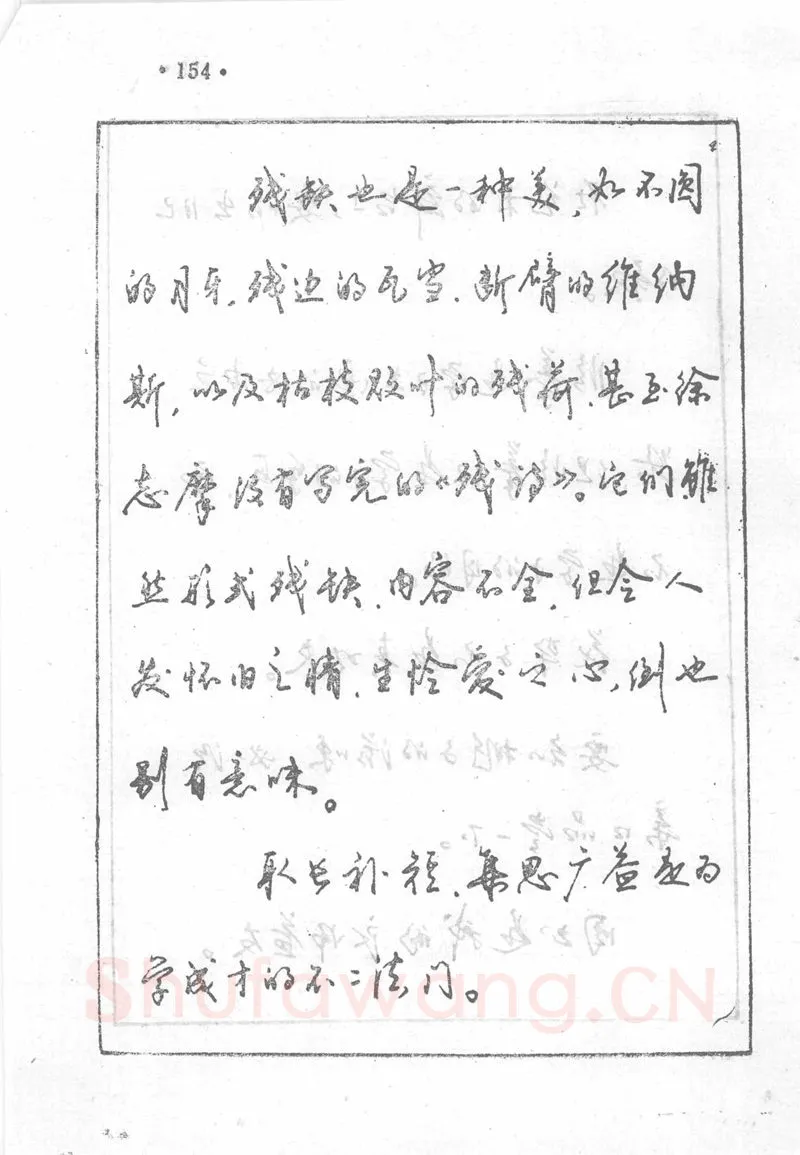 ·154·
残缺也是一种美，如不圆
的月牙，残边的瓦当，断臂的维纳
斯，以及枯枝败叶的残荷，甚至徐
志摩没有写完的《残诗》。它们虽
然形式残缺，内容不全，但令人
发怀旧之情，生怜爱之心，倒也
别有意味。
取长补短，集思广益是为
学成才的不二法门。
Shufawang.CN